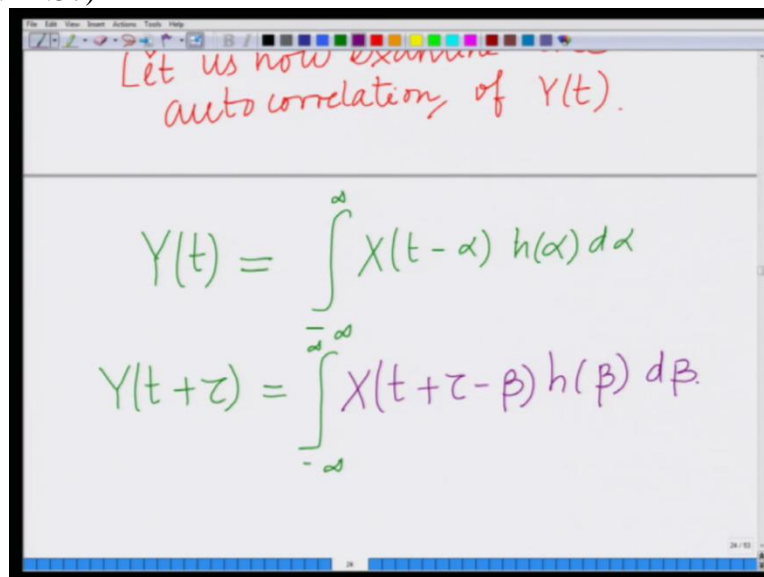 File Edit View Insert Actions Tools Help
Let us now examine
autocorrelation, of Y(t).
Y(t) = ∫_{-∞}^{∞} X(t - α) h(α) dα
Y(t + τ) = ∫_{-∞}^{∞} X(t + τ - β) h(β) dβ.
24 / 53
24